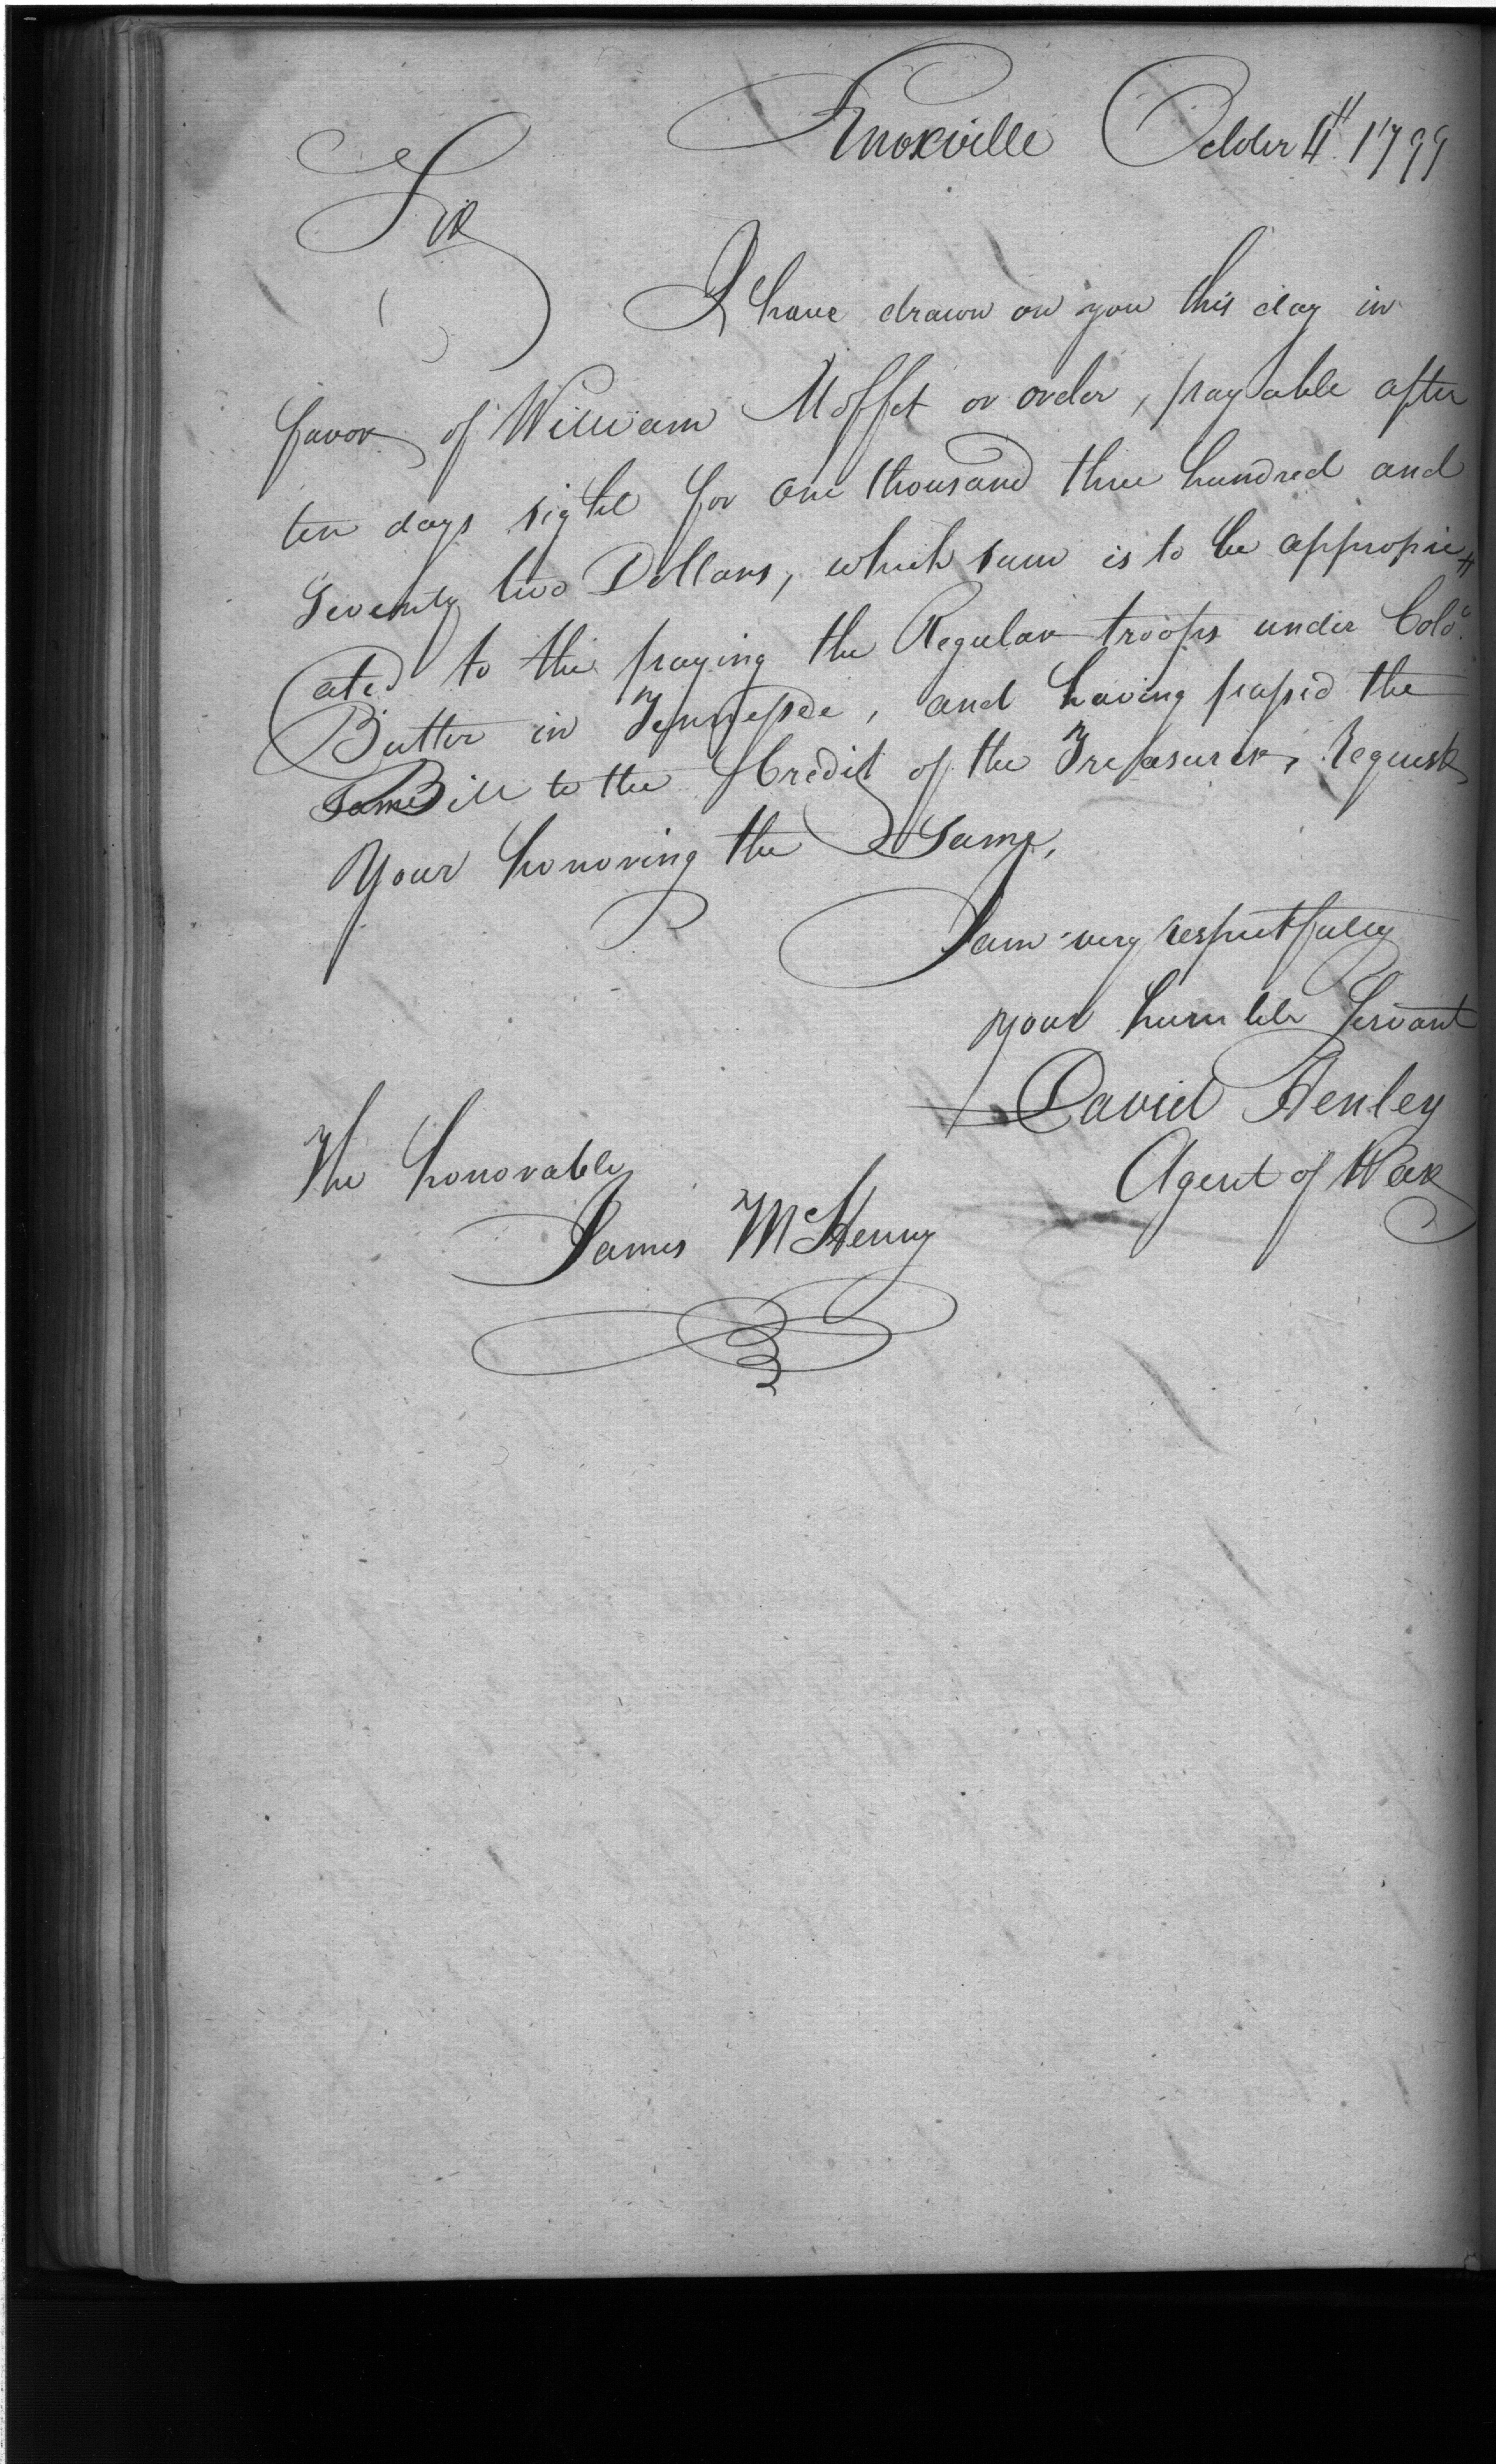 Knoxville October 4th 1799
Sir
I have drawn on you this day in
favor of William Moffet or order, payable after
ten days sight for one thousand three hundred and
Seventy two Dollars, which sum is to be appropri
ated to the paying the Regular troops under Colo.
Butler in Tennessee, and having passed the
Same Bill to the Credit of the Treasurer, request
Your honoring the Same,
I am very respectfully
your humble Servant
David Henley
Agent of War
The honorable
James McHenry